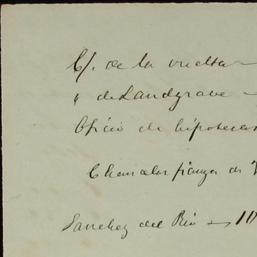 C/. de la vuelta —
" de Landgrave —
Oficio de hipotecas
Chancelar fianza de
Sanchez del Rio — 10